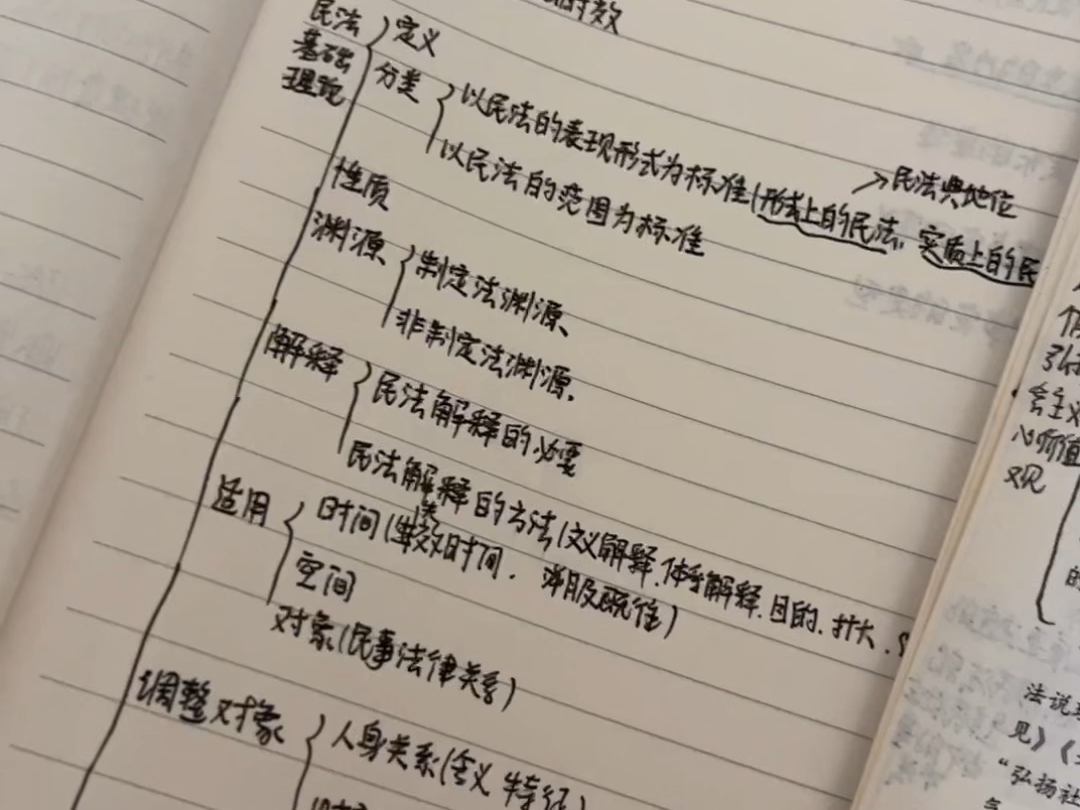 时效
民法基础理论
定义
分类
以民法的表现形式为标准(形式上的民法,实质上的民
→民法典地位
以民法的范围为标准
性质
渊源
制定法渊源、
非制定法渊源.
解释
民法解释的必要
民法解释的方法(文义解释.体系解释.目的.扩大.
适用
时间(生效时间.
空间
对象(民事法律关系)
调整对象
人身关系(含义 特征)
会主义
价值
观
的
法说
见》《
“弘扬社